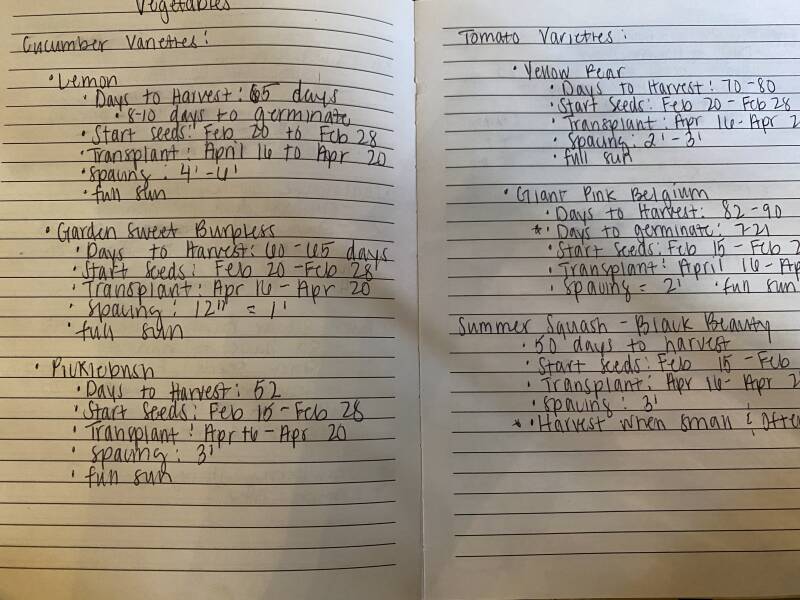 Vegetables
Cucumber Varieties:
• Lemon
• Days to Harvest: 65 days
• 8-10 days to germinate
• Start seeds: Feb 20 to Feb 28
• Transplant: April 16 to Apr 20
• spacing: 4'-6'
• full sun
• Garden Sweet Burpless
• Days to Harvest: 60-65 days
• Start Seeds: Feb 20-Feb 28
• Transplant: Apr 16-Apr 20
• spacing: 12" = 1'
• full sun
• Picklebush
• Days to Harvest: 52
• Start Seeds: Feb 15-Feb 28
• Transplant: Apr 16-Apr 20
• spacing: 3'
• full sun
Tomato Varieties:
• Yellow Pear
• Days to Harvest: 70-80
• Start Seeds: Feb 20-Feb 28
• Transplant: Apr 16-Apr 2
• spacing: 2'-3'
• full sun
• Giant Pink Belgium
• Days to Harvest: 82-90
* • Days to germinate: 7-21
• Start seeds: Feb 15-Feb 2
• Transplant: April 16-Ap
• spacing = 2' • full sun
Summer Squash - Black Beauty
• 50 days to harvest
• Start seeds: Feb 15-Feb
• Transplant: Apr 16-Apr 2
• spacing: 3'
* • Harvest when small & Often